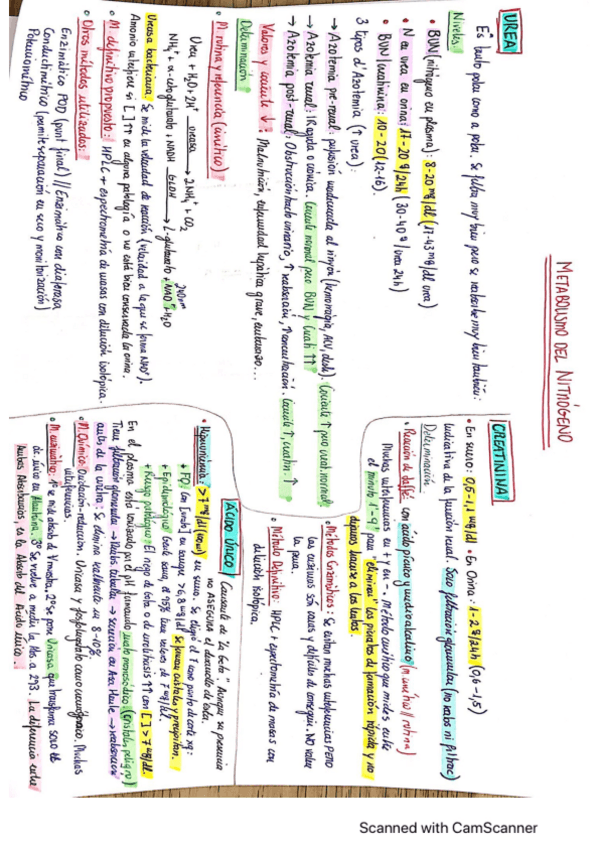 METABOLISMO DEL NITRÓGENO
UREA
Es tanto polar como apolar. Se filtra muy bien pero se reabsorbe muy bien también.
Niveles:
• BUN (nitrógeno en plasma): 8-20 mg/dl (17-43 mg/dl urea)
• N en urea en orina: 17-20 g/24h (30-40 g/urea 24h)
• BUN/creatinina: 10-20 (12-16).
3 tipos d'Azotemia (↑ urea):
→ Azotemia pre-renal: perfusión inadecuada al riñón (hemorragia, shock). Cociente ↑ pero creat normal
→ Azotemia renal: IR aguda o crónica. Cociente normal pero BUN y Creat ↑↑
→ Azotemia post-renal: Obstrucción tracto urinario, ↑ reabsorción, ↑ concentración. Cociente ↑, creatin. ↑
Valores y cociente ↓: Malnutrición, enfermedad hepática grave, embarazo...
Determinación
• M. rutina y referencia (cinético)
Urea + H₂O + 2H⁺ ureasa → 2NH₄⁺ + CO₂
NH₄⁺ + α-cetoglutarato + NADH GLDH → L-glutamato + NAD⁺ + H₂O
340nm
Ureasa bacteriana: Se mide la velocidad de reacción (velocidad a la que se forma NAD⁺).
Amonio interfiere si [ ] ↑↑ en alguna patología o no está bien conservada la orina.
• M. definitivo propuesto: HPLC + espectrometría de masas con dilución isotópica.
• Otros métodos utilizados:
Enzimático POD (punt final) // Enzimático con diaforasa
Conductimétrico (permite separación en seco y monitorización)
Potenciométrico
CREATININA
• En suero: 0,6-1,1 mg/dl • En Orina: 1-2 g/24h (0,6-1,5)
Indicativa de la función renal. Solo filtración glomerular (no reabs ni filtrac)
Determinación
• Reacción de Jaffé: con ácido pícrico y medio alcalino (m cinético // rutina)
Muchas interferencias en + y en -. Método cinético que mides entre
el minuto 1-4 para "eliminar" los picratos de formación rápida y no
dejamos hacerse a los lentos.
• Métodos Enzimáticos: Se evitan muchas interferencias PERO
las enzimas son caras y difíciles de conseguir. NO vale
la pena.
• Método Definitivo: HPLC + espectometría de masas con
dilución isotópica.
ÁCIDO ÚRICO
Causante de "la Gota". Aunque su presencia
no ASEGURA el desarrollo de esta.
• Hiperuricemia: >7 mg/dl en suero. Se eligió el 7 como punto de corte xq:
+ FQ: con [urato] en sangre >6,8 mg/dl se forman cristales y precipitan.
+ Epidemiológico: Gente sana, el 95% tiene valores de 7 mg/dl.
+ Riesgo patológico: El riesgo de Gota o de urolitiasis ↑↑ con [ ] > 7 mg/dl.
En el plasma está ionizado por el pH formando urato monosódico (cristales peligro)
Tiene filtración glomerular → reabs tubular → secreción en Asa Henle → reabsorción
antes de la orina. Se elimina realmente un 8-10%.
• M. Químico: Oxidación-reducción. Uricasa y fosfotungstato como cromógeno. Muchas
interferencias.
• M. enzimático: 1º se mide absorb de V muestra. 2º se pone Uricasa que transforma solo el
ác. úrico en Alantoína. 3º Se vuelve a medir la Abs. a 293. La diferencia entre
ambas Absorbancias, es la Absorb del Ácido úrico.
Scanned with CamScanner